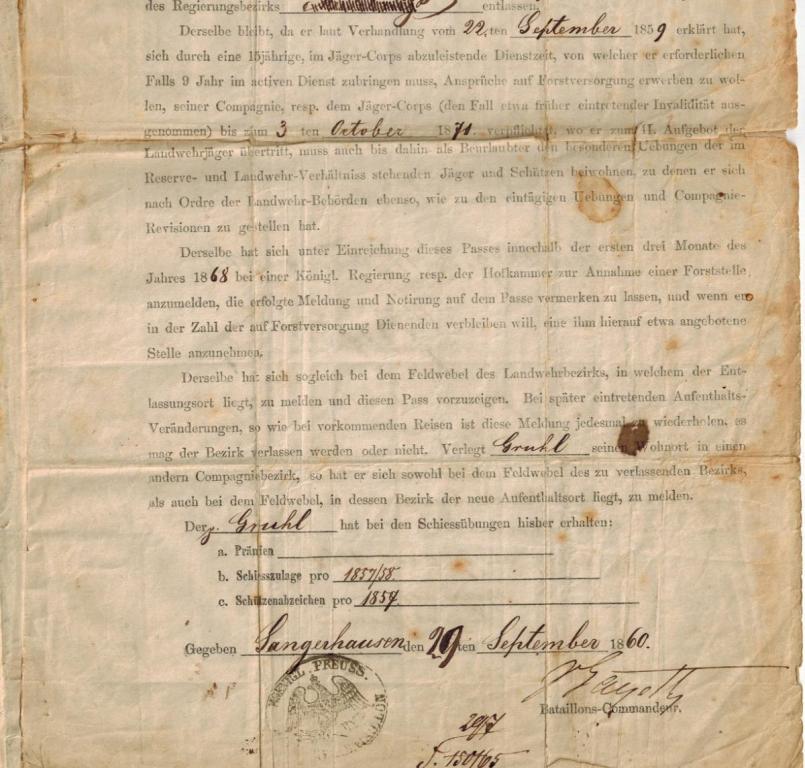 des Regierungsbezirks entlassen.
Derselbe bleibt, da er laut Verhandlung vom 22.ten September 1859 erklärt hat,
sich durch eine 15jährige, im Jäger-Corps abzuleistende Dienstzeit, von welcher er erforderlichen
Falls 9 Jahr im activen Dienst zubringen muss, Ansprüche auf Forstversorgung erwerben zu wol-
len, seiner Compagnie, resp. dem Jäger-Corps (den Fall etwa früher eintretender Invalidität aus-
genommen) bis zum 3 ten October 1871 verpflichtet, wo er zum II. Aufgebot der
Landwehrjäger übertritt, muss auch bis dahin als Beurlaubter den besonderen Uebungen der im
Reserve- und Landwehr-Verhältniss stehenden Jäger und Schützen beiwohnen, zu denen er sich
nach Ordre der Landwehr-Behörden ebenso, wie zu den eintägigen Uebungen und Compagnie-
Revisionen zu gestellen hat.
Derselbe hat sich unter Einreichung dieses Passes innerhalb der ersten drei Monate des
Jahres 1868 bei einer Königl. Regierung resp. der Hofkammer zur Annahme einer Forststelle
anzumelden, die erfolgte Meldung und Notirung auf dem Passe vermerken zu lassen, und wenn er
in der Zahl der auf Forstversorgung Dienenden verbleiben will, eine ihm hierauf etwa angebotene
Stelle anzunehmen.
Derselbe hat sich sogleich bei dem Feldwebel des Landwehrbezirks, in welchem der Ent-
lassungsort liegt, zu melden und diesen Pass vorzuzeigen. Bei später eintretenden Aufenthalts-
Veränderungen, so wie bei vorkommenden Reisen ist diese Meldung jedesmal zu wiederholen, es
mag der Bezirk verlassen werden oder nicht. Verlegt Gruhl seinen Wohnort in einen
andern Compagniebezirk, so hat er sich sowohl bei dem Feldwebel des zu verlassenden Bezirks,
als auch bei dem Feldwebel, in dessen Bezirk der neue Aufenthaltsort liegt, zu melden.
Der p. Gruhl hat bei den Schiessübungen hisher erhalten:
a. Prämien
b. Schiesszulage pro 1857/58.
c. Schützenabzeichen pro 1857.
Gegeben Sangerhausen den 29 ten September 1860.
KOENIGL. PREUSS.
Bataillons-Commandeur.